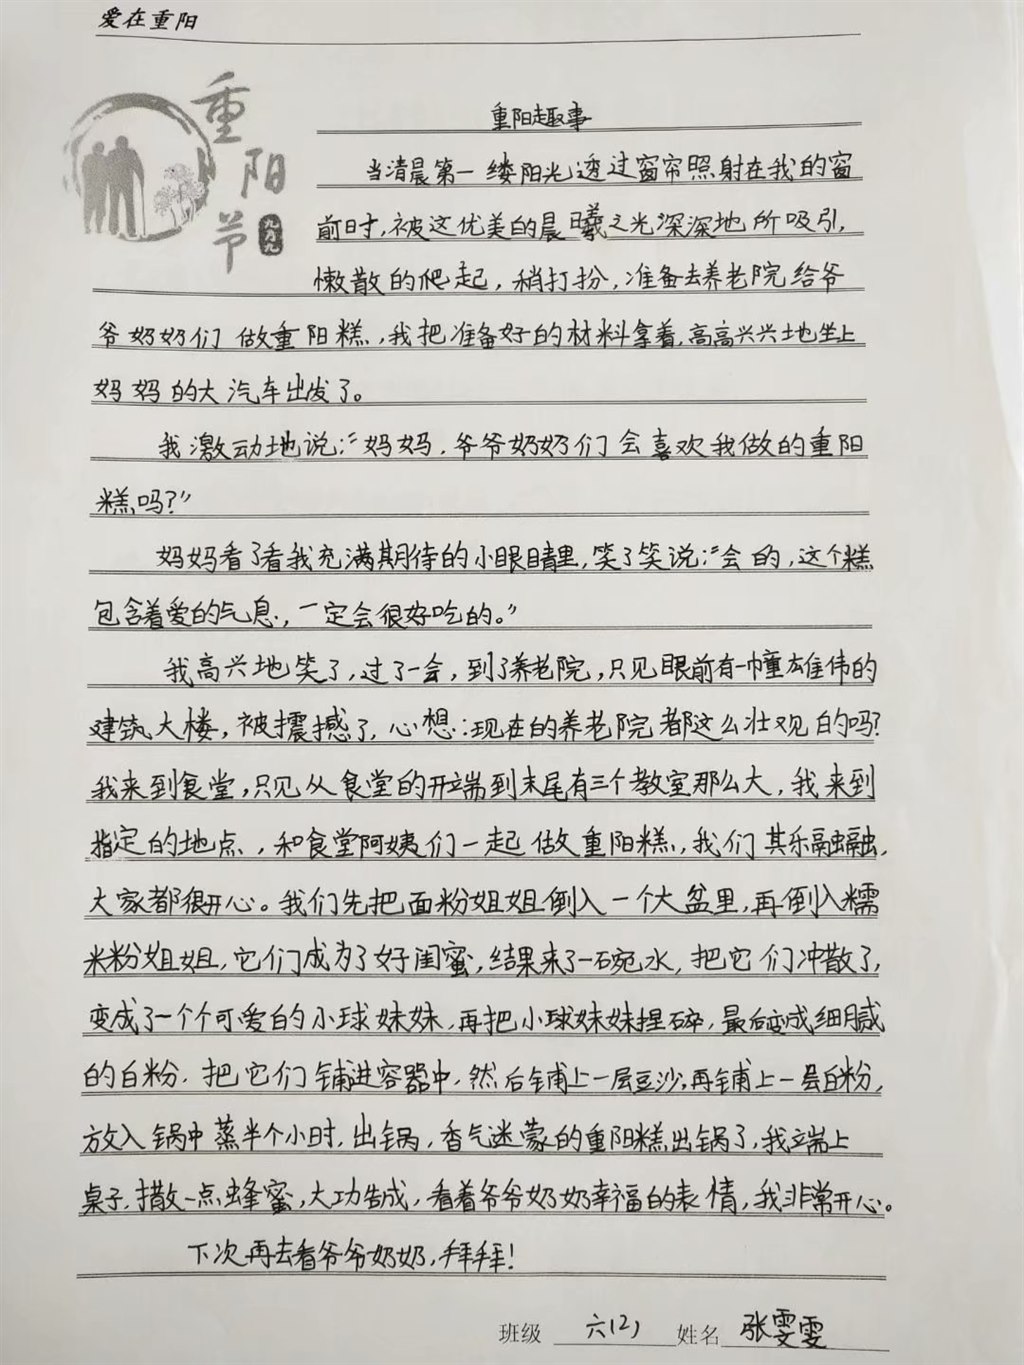 爱在重阳
重阳节
九月九
重阳趣事
当清晨第一缕阳光透过窗帘照射在我的窗
前时,被这优美的晨曦之光深深地所吸引,
懒散的爬起,稍打扮,准备去养老院给爷
爷奶奶们做重阳糕,我把准备好的材料拿着,高高兴兴地坐上
妈妈的大汽车出发了。
我激动地说:“妈妈,爷爷奶奶们会喜欢我做的重阳
糕吗?”
妈妈看了看我充满期待的小眼睛里,笑了笑说:“会的,这个糕
包含着爱的气息,一定会很好吃的。”
我高兴地笑了,过了一会,到了养老院,只见眼前有一幢雄伟的
建筑大楼,被震撼了,心想:现在的养老院都这么壮观的吗?
我来到食堂,只见从食堂的开端到末尾有三个教室那么大,我来到
指定的地点,和食堂阿姨们一起做重阳糕,我们其乐融融,
大家都很开心。我们先把面粉姐姐倒入一个大盆里,再倒入糯
米粉姐姐,它们成为了好闺蜜,结果来了一碗水,把它们冲散了,
变成了一个个可爱的小球妹妹,再把小球妹妹捏碎,最后变成细腻
的白粉,把它们铺进容器中,然后铺上一层豆沙,再铺上一层白粉,
放入锅中蒸半个小时,出锅,香气迷蒙的重阳糕出锅了,我端上
桌子,撒一点蜂蜜,大功告成,看着爷爷奶奶幸福的表情,我非常开心。
下次再去看爷爷奶奶,拜拜!
班级 六(2) 姓名 张雯雯